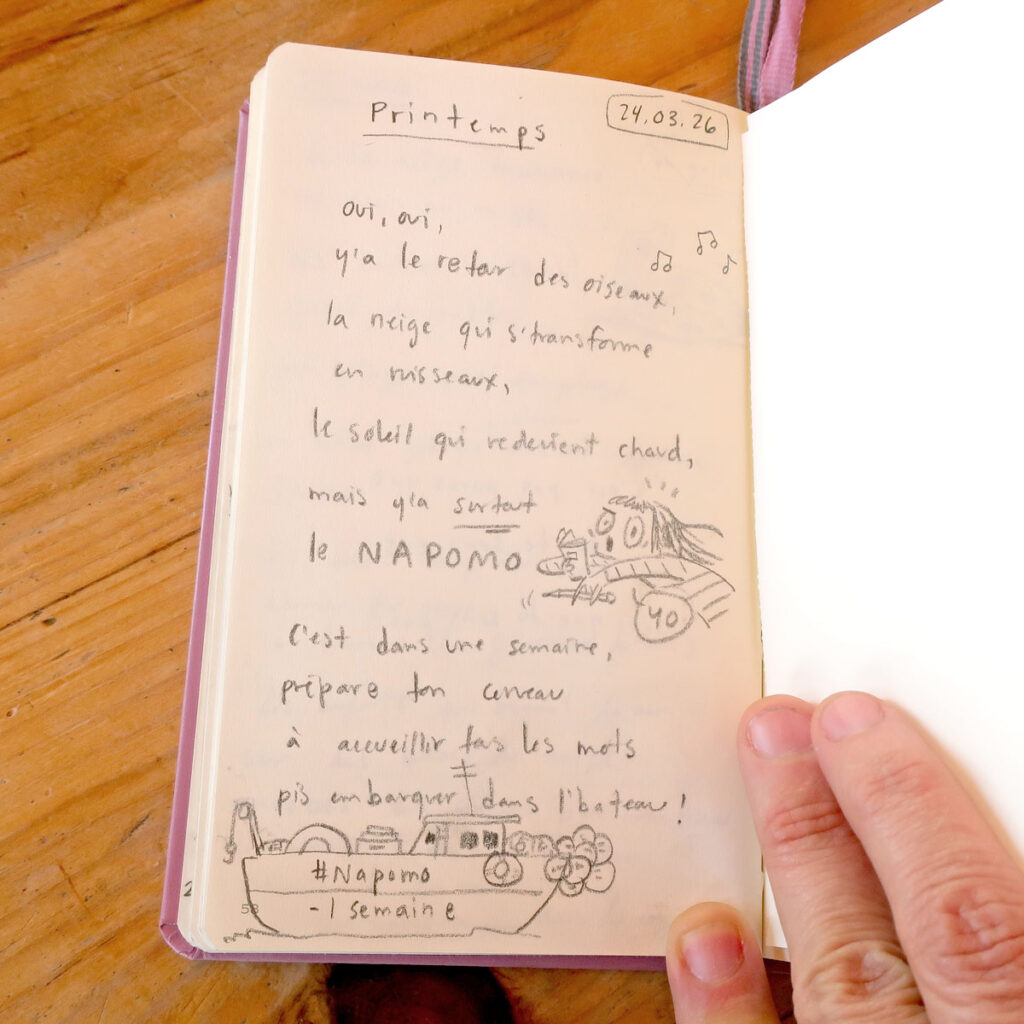 Printemps
24.03.26
oui, oui,
y'a le retour des oiseaux,
la neige qui s'transforme
en ruisseaux,
le soleil qui redevient chaud,
mais y'a surtout
le NAPOMO
40
C'est dans une semaine,
prépare ton cerveau
à accueillir tous les mots
pis embarquer dans l'bateau!
#Napomo
-1 semaine
58